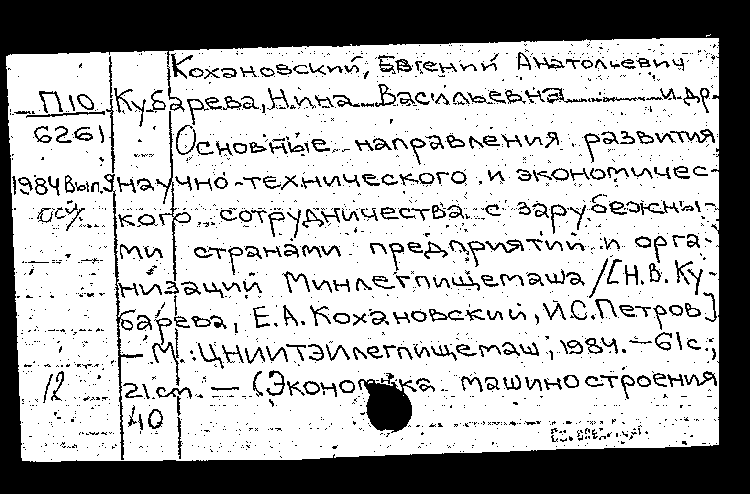 Кохановский, Евгений Анатольевич
П10 Кубарева, Нина Васильевна и др.
6261 Основные направления развития
1984 Вып.9 научно-технического и экономичес-
кого сотрудничества с зарубежны-
ми странами предприятий и орга-
низаций Минлегпищемаша /[Н.В. Ку-
барева, Е.А. Кохановский, И.С. Петров]
– М.: ЦНИИТЭИлегпищемаш, 1984. – 61 с.;
12 21 см. – (Экономика машиностроения
40